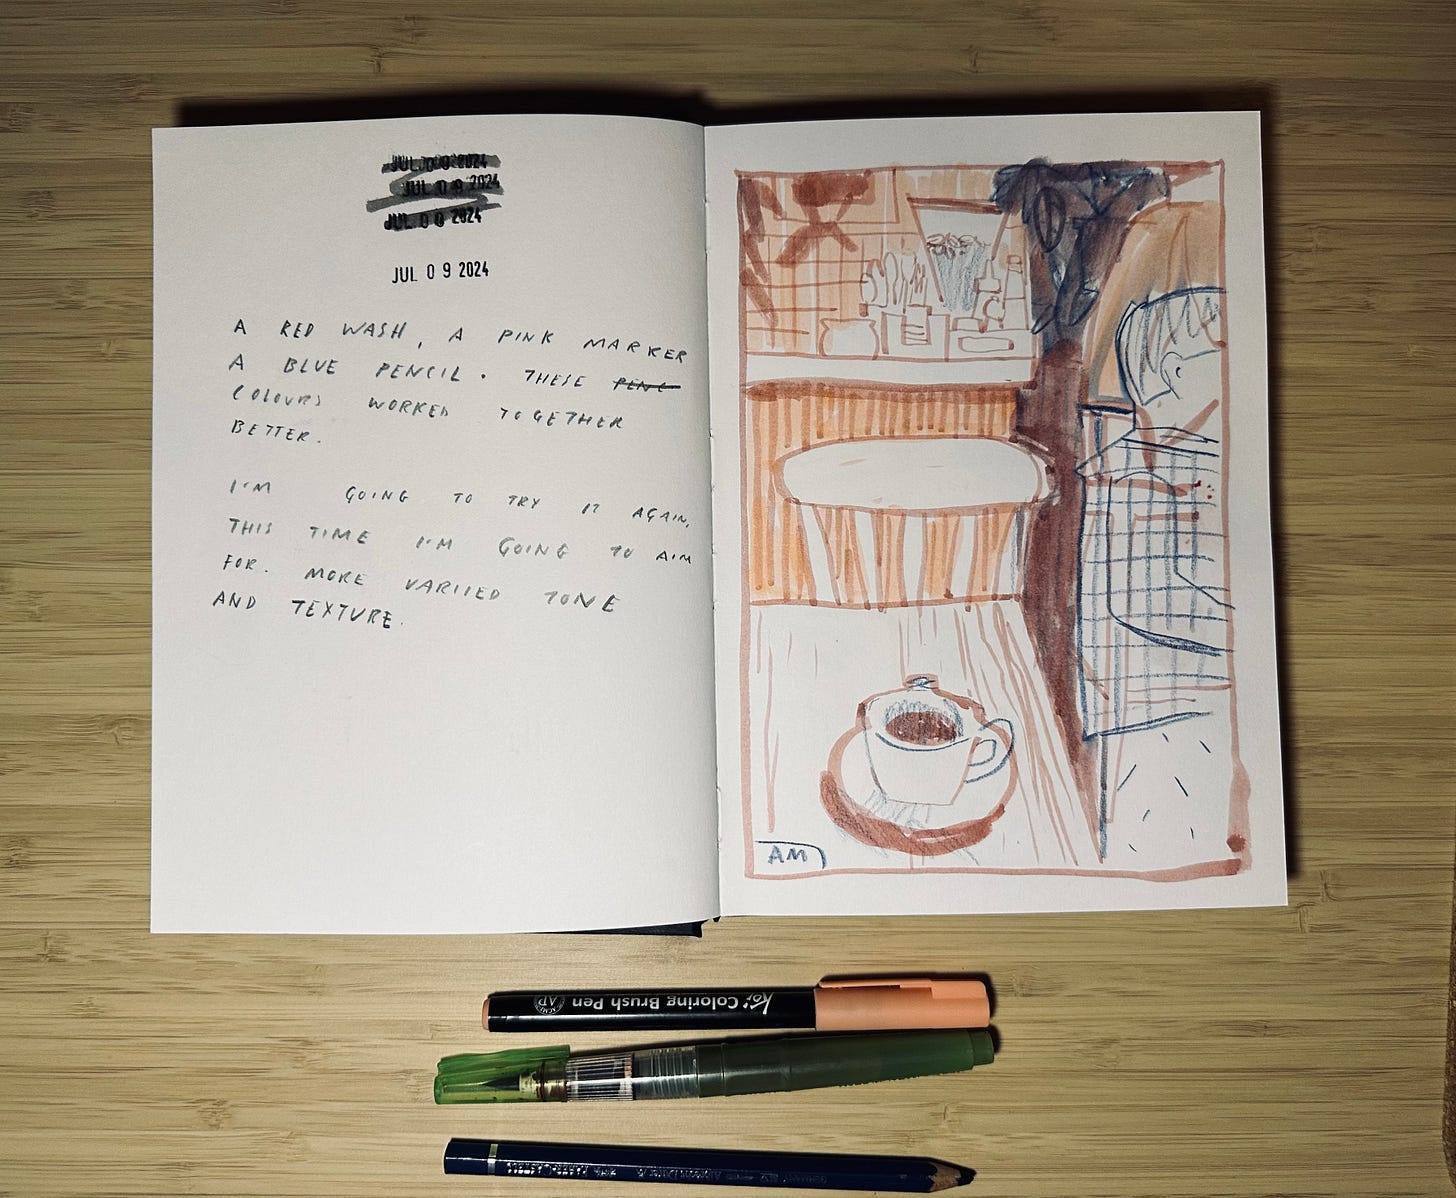 JUL 08 2024
JUL 09 2024
JUL 08 2024
JUL 09 2024
A RED WASH, A PINK MARKER
A BLUE PENCIL. THESE PENC
COLOURS WORKED TOGETHER
BETTER.
I'M GOING TO TRY IT AGAIN,
THIS TIME I'M GOING TO AIM
FOR. MORE VARIIED TONE
AND TEXTURE.
AM
Koi Coloring Brush Pen AP
FABER-CASTELL